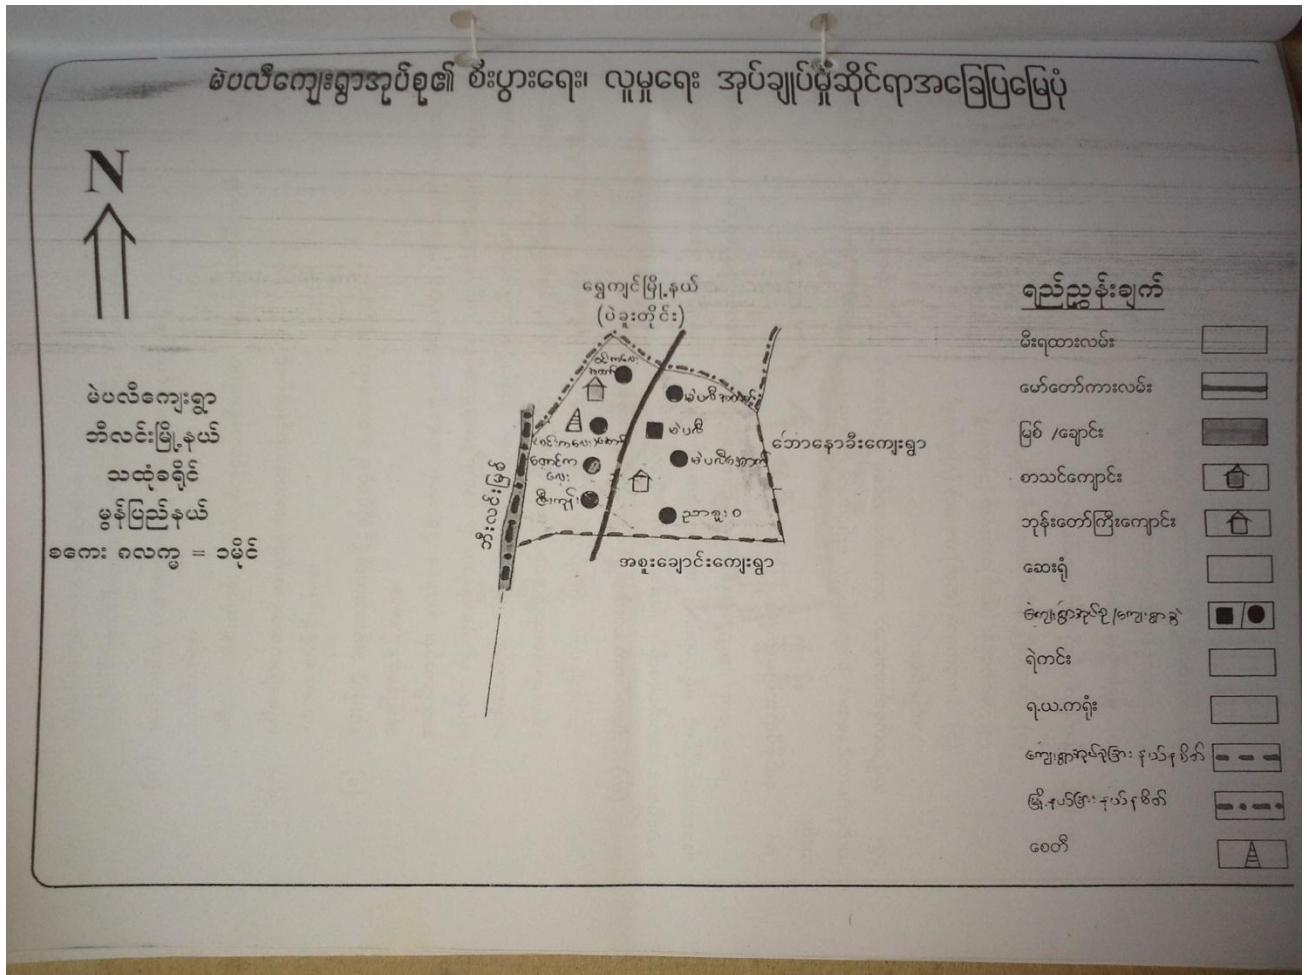 မဲပလီကျေးရွာအုပ်စု၏ စီးပွားရေး၊ လူမှုရေး အုပ်ချုပ်မှုဆိုင်ရာအခြေပြမြေပုံ
N
မဲပလီကျေးရွာ
ဘီလင်းမြို့နယ်
သထုံခရိုင်
မွန်ပြည်နယ်
စကေး ၈လက္မ = ၁မိုင်
ရွှေကျင်မြို့နယ်
(ပဲခူးတိုင်း)
မဲပလီ
မဲပလီအောက်
ဘောနောခီးကျေးရွာ
ဘီးလင်းမြစ်
အစူးချောင်းကျေးရွာ
ရည်ညွှန်းချက်
မီးရထားလမ်း
မော်တော်ကားလမ်း
မြစ် /ချောင်း
စာသင်ကျောင်း
ဘုန်းတော်ကြီးကျောင်း
ဆေးရုံ
ကျေးရွာအုပ်စု/ကျေးရွာခွဲ
ရဲကင်း
ရ.ယ.ကရုံး
ကျေးရွာအုပ်စုခြားနယ်နမိတ်
မြို့နယ်ခြားနယ်နမိတ်
စေတီ